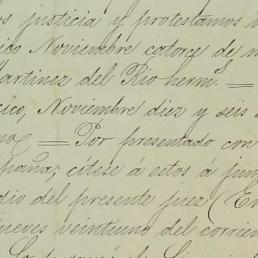 os justicia y protestamos
ico Noviembre catorce de
Martinez del Rio herm.ˢ =
ico, Noviembre diez y seis
= Por presentado con
paña; cítese á estos á
dio del presente juez (En
jueves veintiuno del corrien